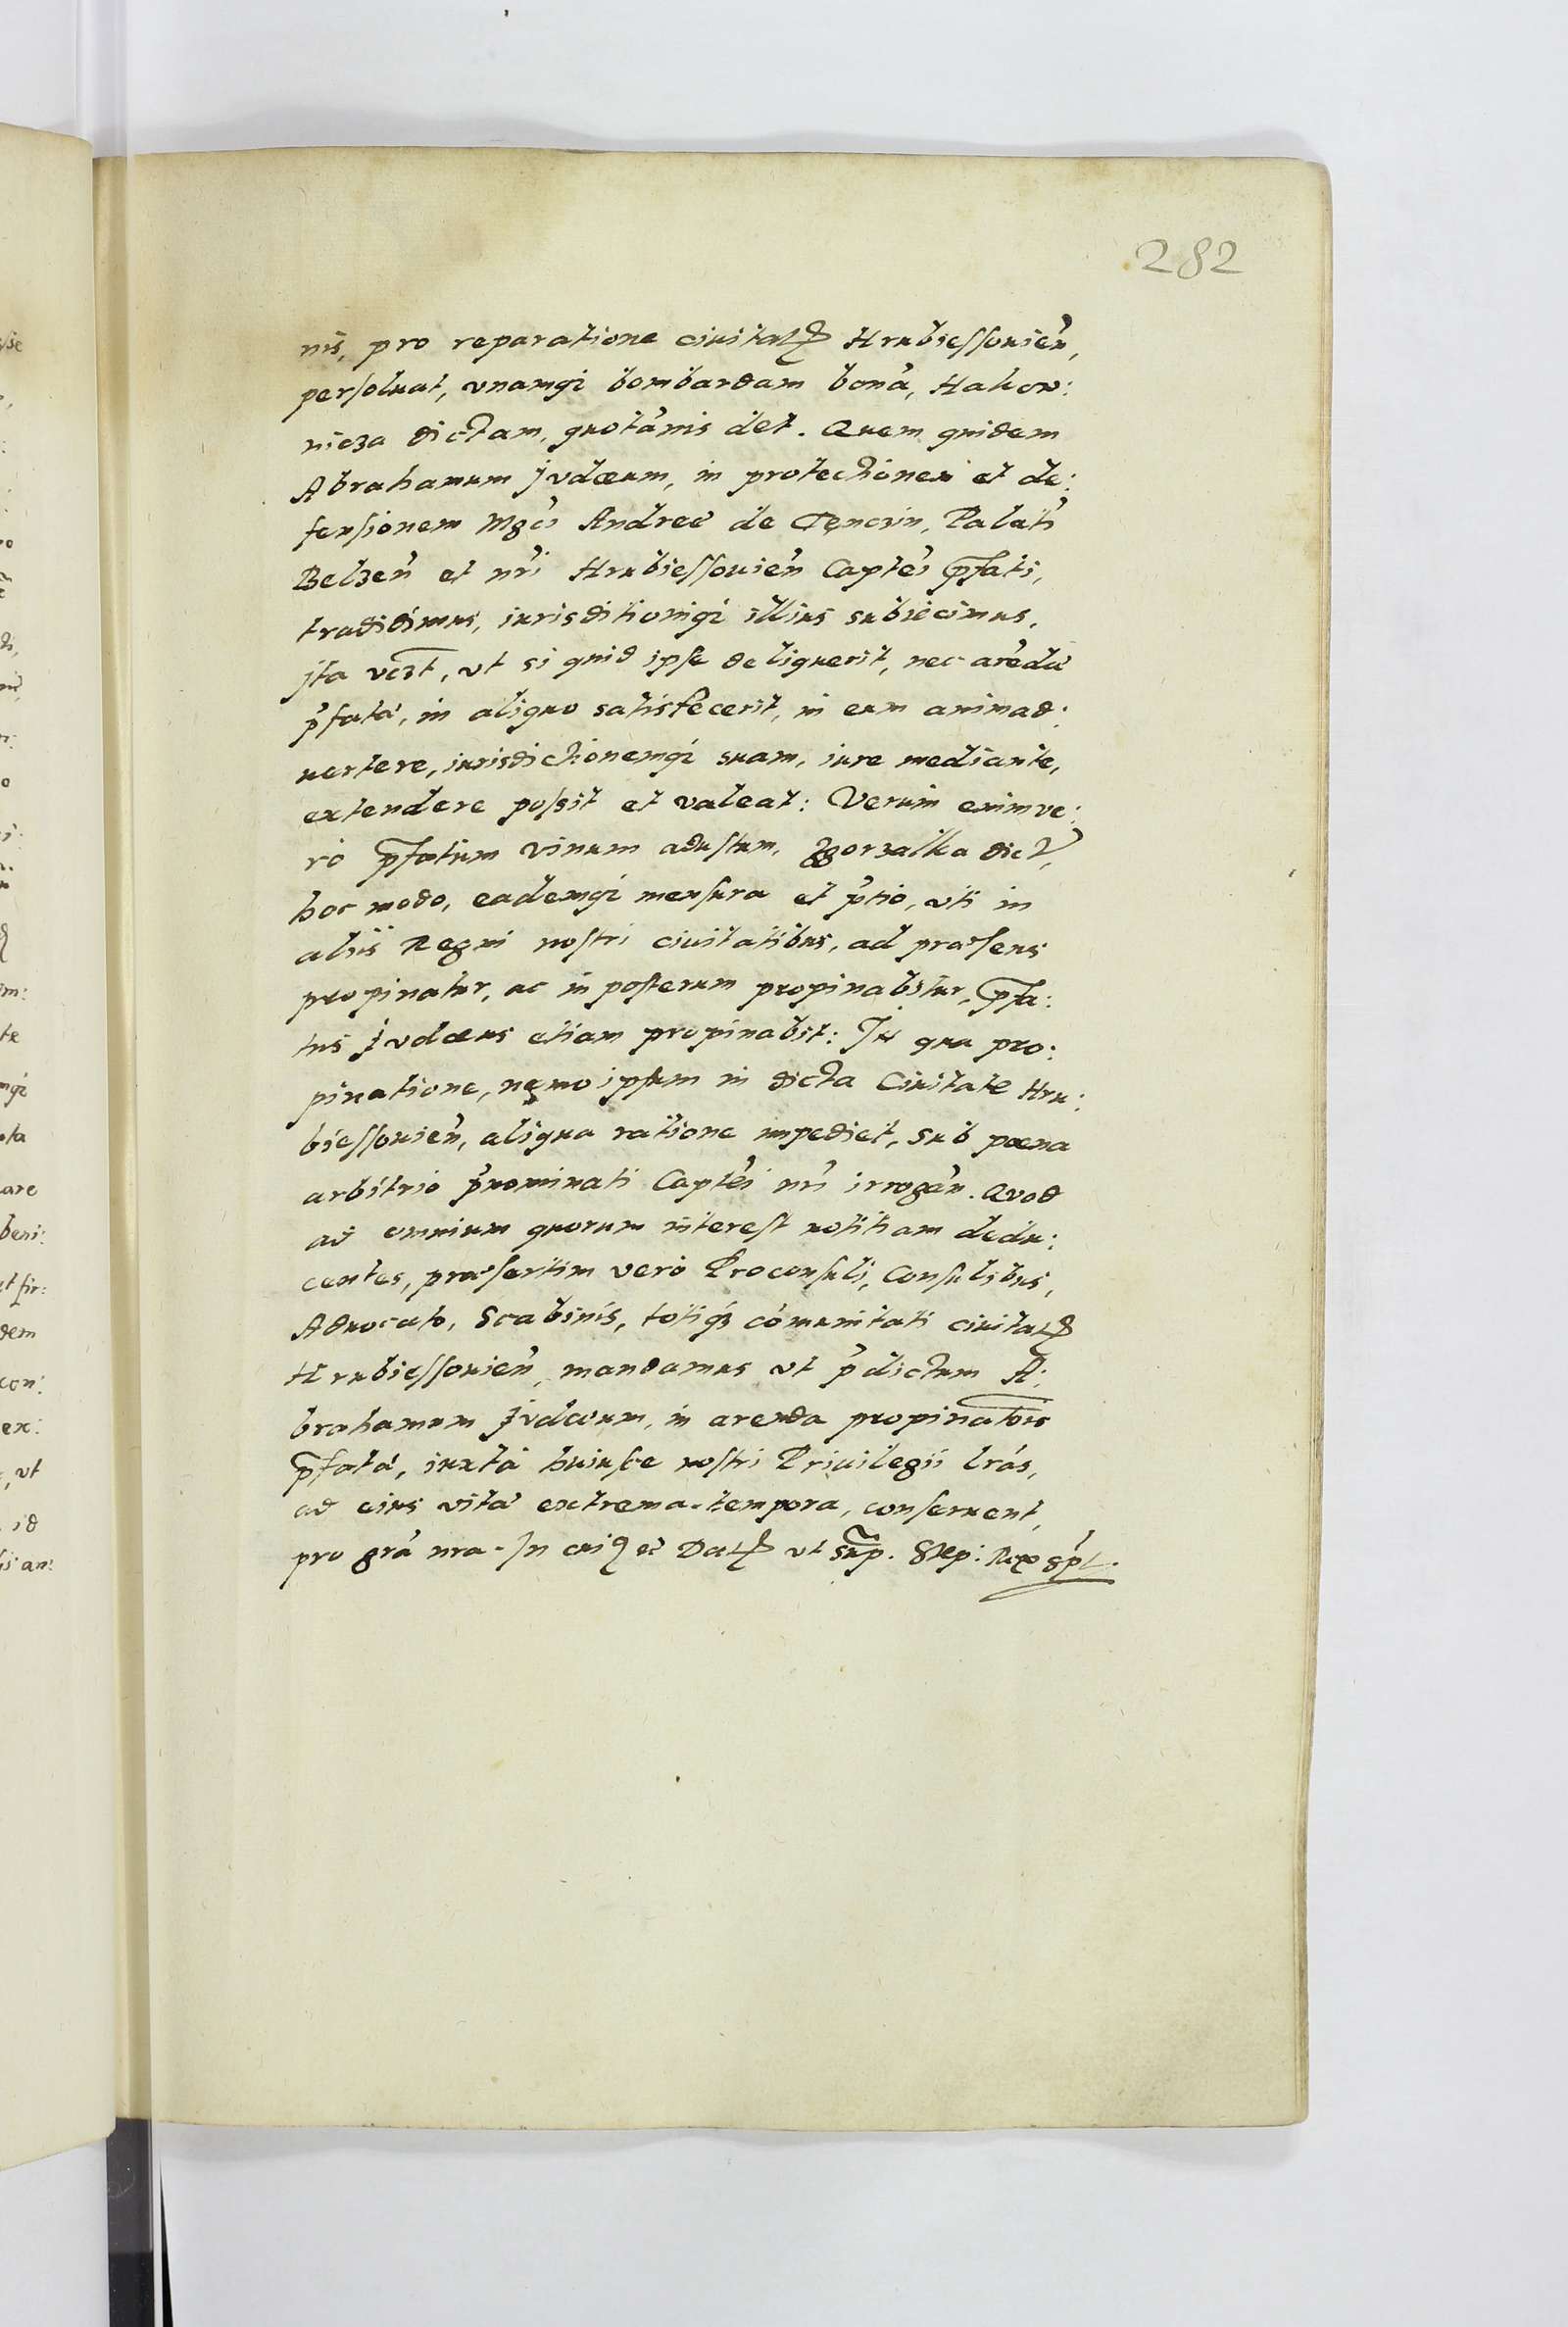 282
nis, pro reparatione ciuitatꝭ Hrubiessouieñ,
persoluat, vnamqȝ bombardam bonã, Hakow:
nicza dictam, quotãnis det. Quem quidem
Abrahamum Judæum, in protectionem et de:
fensionem Mgci Andreæ de Tęnczin, Palatĩ
Belzeñ et nri Hrubiessouieñ Captei p̃fati,
tradidimus, iurisditioniqȝ illius subiecimus,
Jta vczt, vt si quid ipse deliquerit, nec arẽdã
p̃fatã, in aliquo satisfecerit, in eum animad:
uertere, iurisdictionemqȝ suam, iure mediante,
extendere possit et valeat: Verum enimve:
rò p̃fatum vinum adustum, Zgorzalka dict,
hoc modo, eademqȝ mensura et p̃tio, vti in
aliis Regni nostri ciuitatibus, ad præsens
propinatur, ac in posterum propinabitur, p̃fa:
tus Judæus etiam propinabit: In qua pro:
pinatione, nęmo ipsum in dicta Ciuitate Hru:
biessouieñ, aliqua ratione impediet, sub poena
arbitrio p̃nominati Captei nri irrogañ. Quod
ad omnium quorum interest notitiam dedu:
centes, præsertim verò Proconsuli, Consulibus,
Aduocato, Scabinis, totiqȝ cõmunitati ciuitatꝭ
Hrubiessouieñ, mandamus vt p̃dictum A:
brahamum Judæum, in arenda propinatois
p̃fatã, iuxtà huiusce nostri Priuilegii lrãs,
ad eius vitæ extrema tempora, conseruent,
pro grã nra. In cuiꝰ ec Datꝭ vt sup. Step: Rex sspt.
ɩse
o
te
mqȝ
ota
are
beni:
et fir:
dem
con:
ex:
, vt
id
is an: